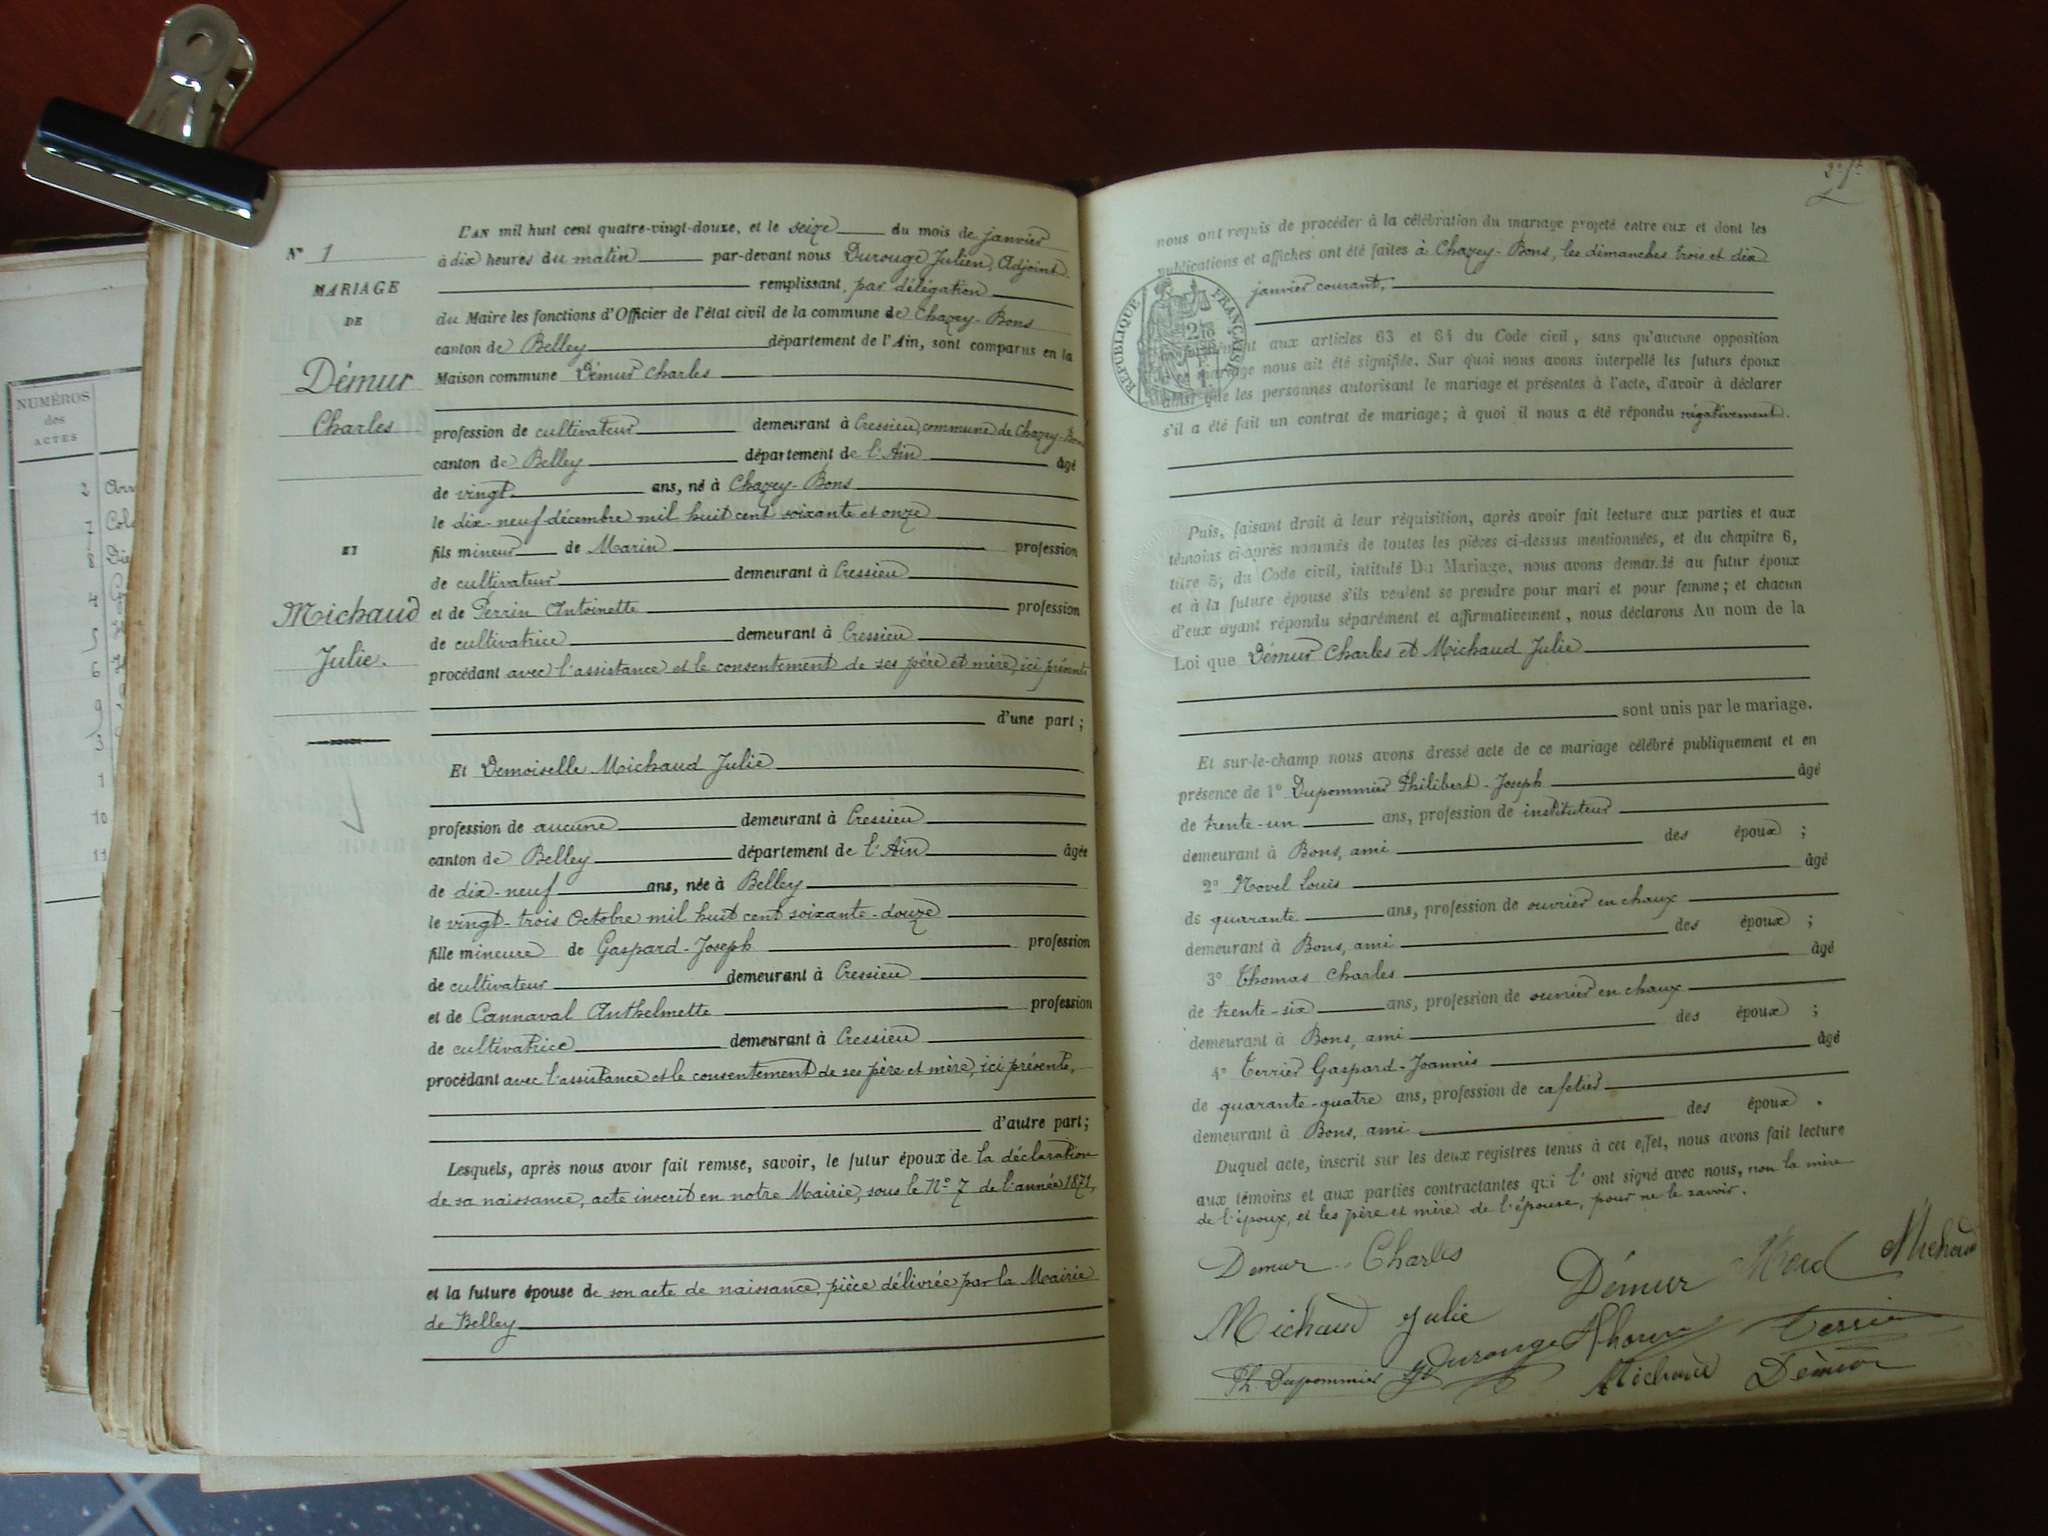 NUMÉROS
des
ACTES
2
7
8
4
5
6
9
3
1
10
11
N° 1
MARIAGE
DE
Démur
Charles
ET
Michaud
Julie.
L'AN mil huit cent quatre-vingt-douze, et le seize du mois de janvier
à dix heures du matin par-devant nous Durouge Julien, Adjoint
remplissant, par délégation
du Maire les fonctions d'Officier de l'état civil de la commune de Chazey-Bons
canton de Belley département de l'Ain, sont comparus en la
Maison commune Démur Charles
profession de cultivateur demeurant à Cressieu, commune de Chazey-Bons
canton de Belley département de l'Ain âgé
de vingt ans, né à Chazey-Bons
le dix-neuf décembre mil huit cent soixante et onze
fils mineur de Marin profession
de cultivateur demeurant à Cressieu
et de Perrin Antoinette profession
de cultivatrice demeurant à Cressieu
procédant avec l'assistance et le consentement de ses père et mère, ici présents
d'une part;
Et Demoiselle Michaud Julie
profession de aucune demeurant à Cressieu
canton de Belley département de l'Ain âgée
de dix-neuf ans, née à Belley
le vingt-trois Octobre mil huit cent soixante-douze
fille mineure de Gaspard-Joseph profession
de cultivateur demeurant à Cressieu
et de Cannaval Anthelmette profession
de cultivatrice demeurant à Cressieu
procédant avec l'assistance et le consentement de ses père et mère, ici présents,
d'autre part;
Lesquels, après nous avoir fait remise, savoir, le futur époux de la déclaration
de sa naissance, acte inscrit en notre Mairie, sous le N° 7 de l'année 1871,
et la future épouse de son acte de naissance, pièce délivrée par la Mairie
de Belley
nous ont requis de procéder à la célébration du mariage projeté entre eux et dont les
publications et affiches ont été faites à Chazey-Bons, les dimanches trois et dix
janvier courant,
RÉPUBLIQUE FRANÇAISE
aux articles 63 et 64 du Code civil, sans qu'aucune opposition
mariage nous ait été signifiée. Sur quoi nous avons interpellé les futurs époux
ainsi que les personnes autorisant le mariage et présentes à l'acte, d'avoir à déclarer
s'il a été fait un contrat de mariage; à quoi il nous a été répondu négativement.
Puis, faisant droit à leur réquisition, après avoir fait lecture aux parties et aux
témoins ci-après nommés de toutes les pièces ci-dessus mentionnées, et du chapitre 6,
titre 5, du Code civil, intitulé Du Mariage, nous avons demandé au futur époux
et à la future épouse s'ils veulent se prendre pour mari et pour femme; et chacun
d'eux ayant répondu séparément et affirmativement, nous déclarons Au nom de la
Loi que Démur Charles et Michaud Julie
sont unis par le mariage.
Et sur-le-champ nous avons dressé acte de ce mariage célébré publiquement et en
présence de 1° Dupommier Philibert-Joseph âgé
de trente-un ans, profession de instituteur
demeurant à Bons, ami des époux;
2° Novel Louis âgé
de quarante ans, profession de ouvrier en chaux
demeurant à Bons, ami des époux;
3° Thomas Charles âgé
de trente-six ans, profession de ouvrier en chaux
demeurant à Bons, ami des époux;
4° Terrier Gaspard-Joannès âgé
de quarante-quatre ans, profession de cafetier
demeurant à Bons, ami des époux.
Duquel acte, inscrit sur les deux registres tenus à cet effet, nous avons fait lecture
aux témoins et aux parties contractantes qui l'ont signé avec nous, non la mère
de l'époux, et les père et mère de l'épouse, pour ne le savoir.
Demur Charles
Démur
Michaud
Michaud Julie
Durouge
Terrier
Ph. Dupommier
Michaud Démur